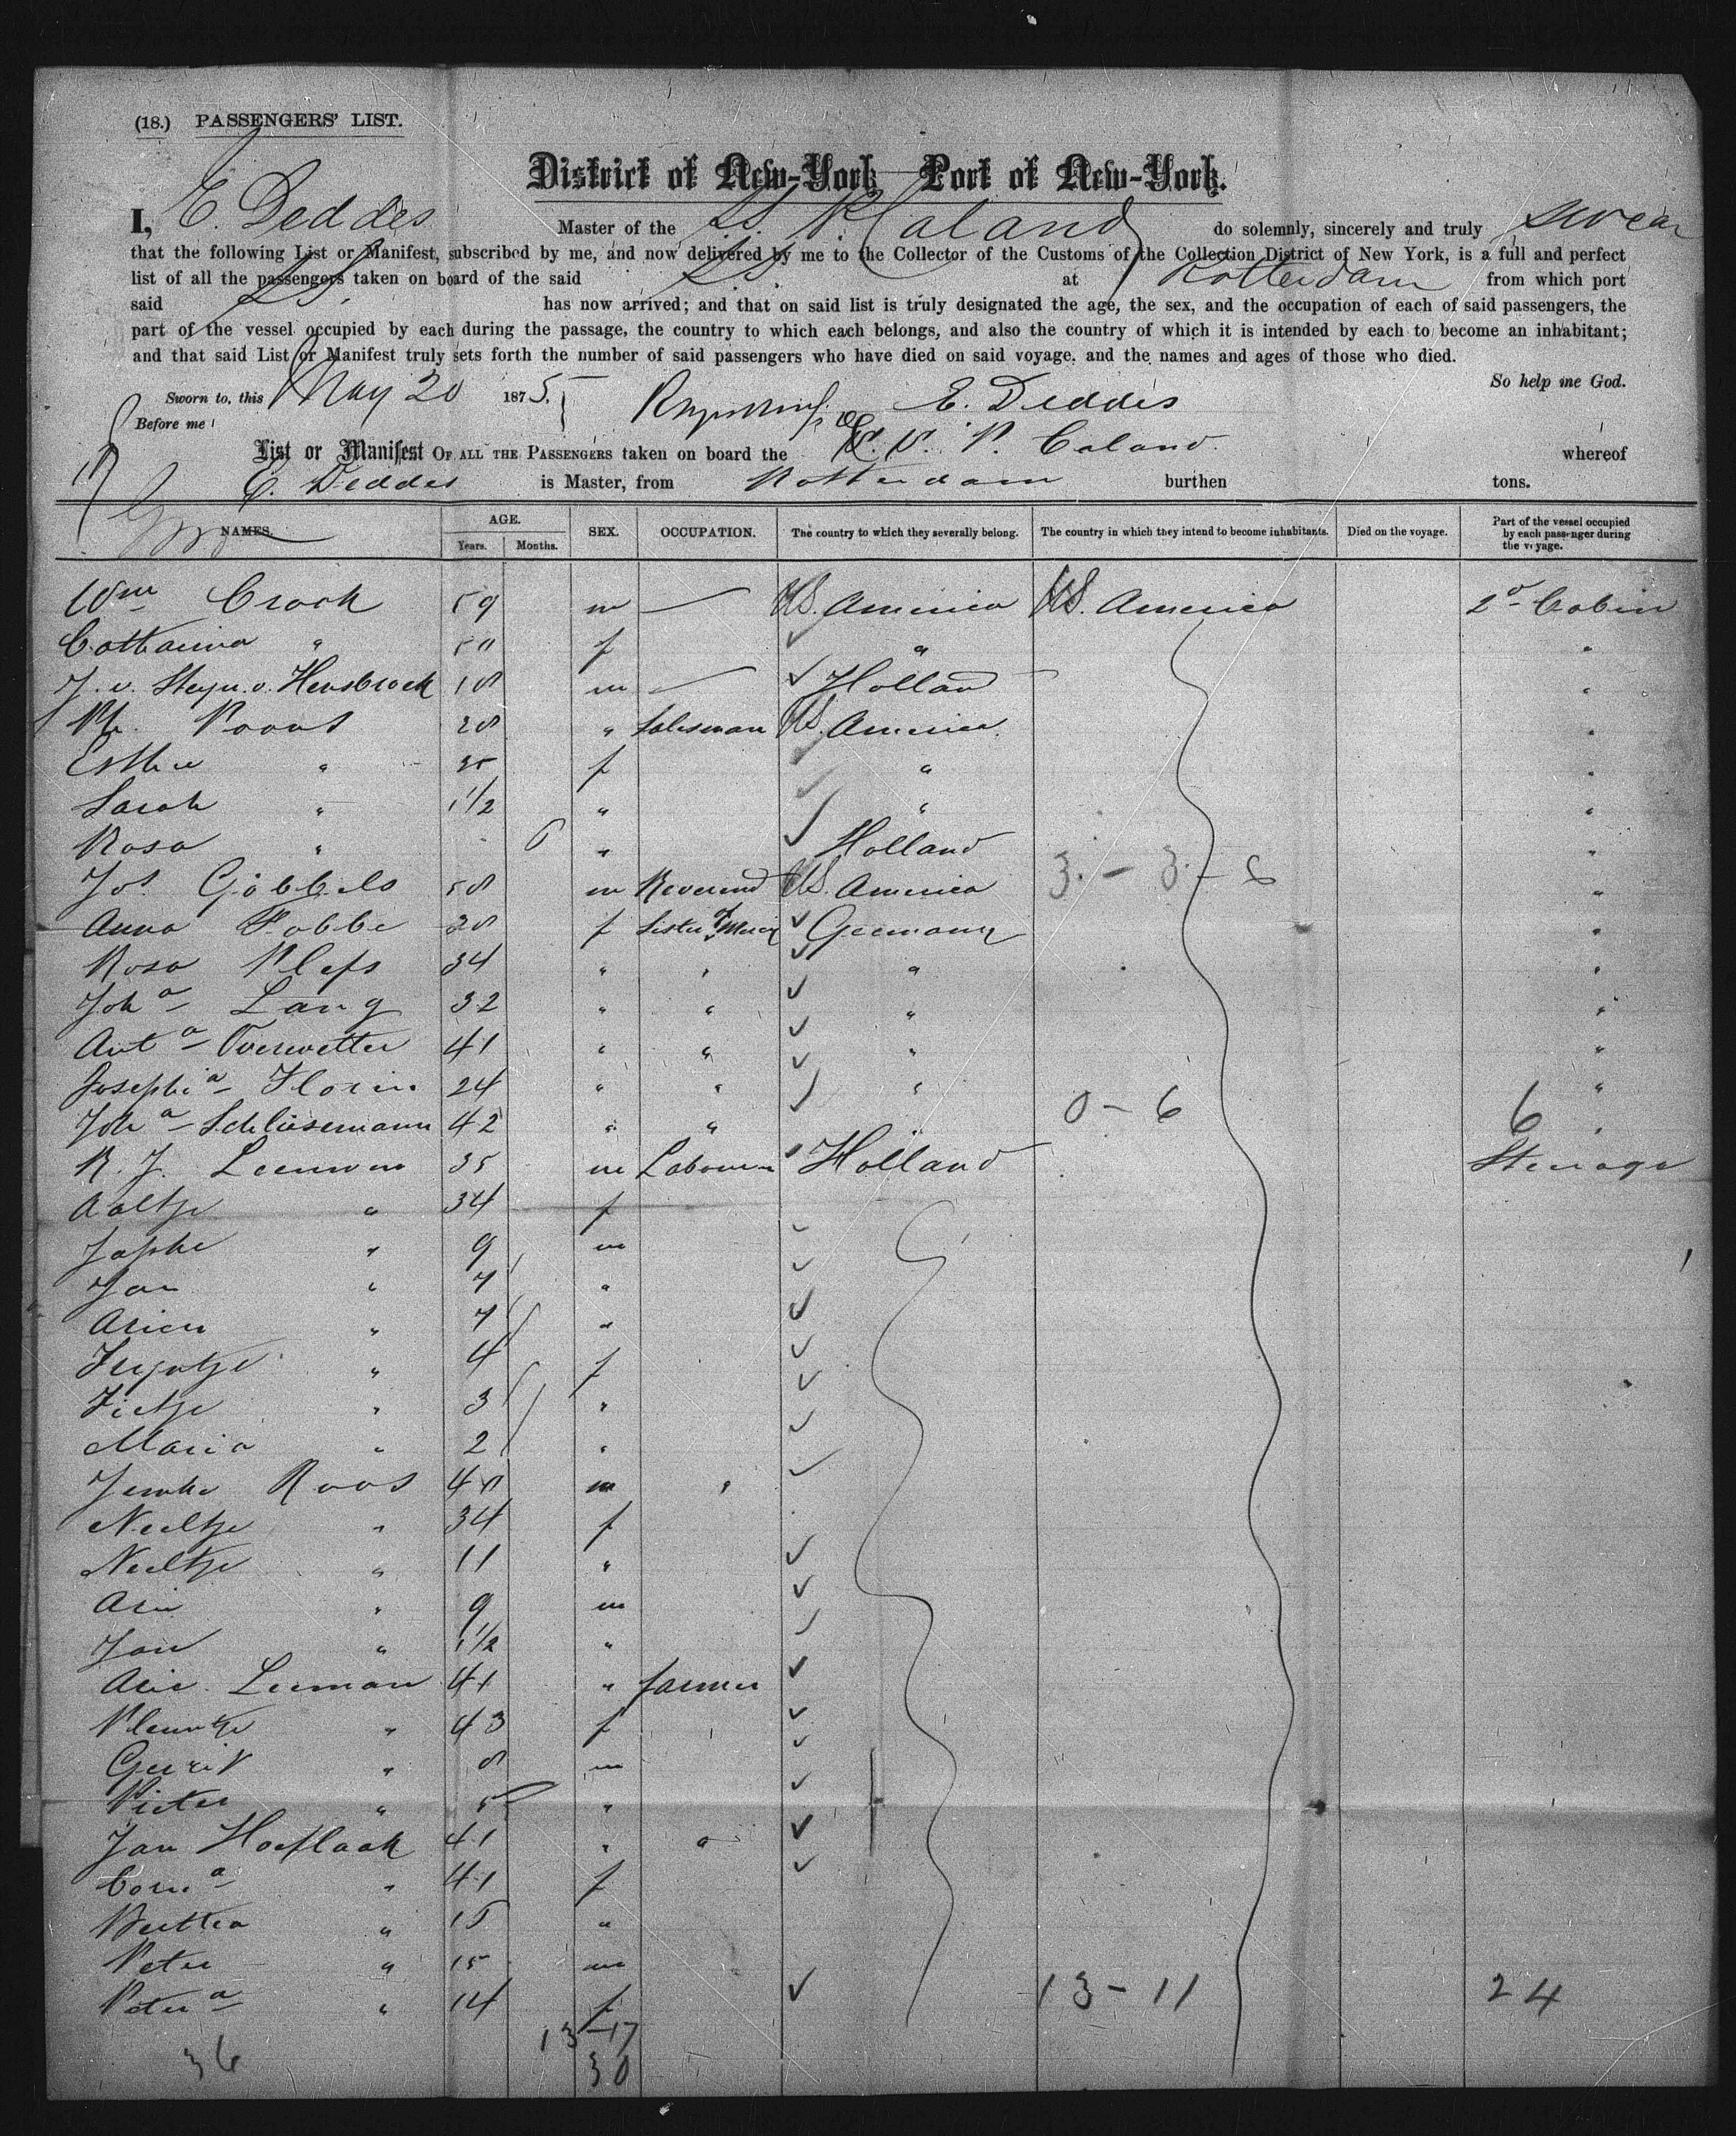 (18.) PASSENGERS' LIST.
District of New-York Port of New-York.
I, E. Deddes Master of the S.S. P. Caland do solemnly, sincerely and truly swear
that the following List or Manifest, subscribed by me, and now delivered by me to the Collector of the Customs of the Collection District of New York, is a full and perfect
list of all the passengers taken on board of the said S.S. at Rotterdam from which port
said S.S. has now arrived; and that on said list is truly designated the age, the sex, and the occupation of each of said passengers, the
part of the vessel occupied by each during the passage, the country to which each belongs, and also the country of which it is intended by each to become an inhabitant;
and that said List or Manifest truly sets forth the number of said passengers who have died on said voyage, and the names and ages of those who died.
So help me God.
Sworn to, this May 20 1875, E. Deddes
Before me
List or Manifest OF ALL THE PASSENGERS taken on board the P. Caland whereof
E. Deddes is Master, from Rotterdam burthen tons.
NAMES. AGE. Years. Months. SEX. OCCUPATION. The country to which they severally belong. The country in which they intend to become inhabitants. Died on the voyage. Part of the vessel occupied by each passenger during the voyage.
Wm Crook 59 m — US. America US. America 2d Cabin
Catharina " 50 f " "
J. v. Steyn. v. Hensbroek 18 m — Holland "
Ph. Poons 28 " Salesman US. America "
Esther " 25 f " "
Sarah " 1 1/2 " " "
Rosa " 6 " Holland "
Jos. Göbbels 58 m Reverend US. America 3 - 3 - 6 "
Anna Fobbe 28 f Sister of Mercy Germany "
Rosa Plefs 34 " " " "
Joha Lang 32 " " " "
Anta Overwetter 41 " " " "
Josephia Florin 24 " " " "
Joha Schlüsemann 42 " " " 0 - 6 6 "
R. J. Leenwen 35 m Labourer Holland Steerage
Aaltje " 34 f
Japke " 9 m
Jan " 7 "
Arien " 7 "
Trijntje " 4 f
Fietje " 3 "
Maria " 2 "
Jemke Roos 48 m "
Neeltje " 34 f
Neeltje " 11 "
Arie " 9 m
Jan " 1 1/2 "
Arie Leeman 41 " farmer
Pleuntje " 43 f
Gerrit " 8 m
Pieter " 5 "
Jan Hoeflaak 41 " "
Corna " 41 f
Bertha " 15 "
Peter " 15 m
Petera " 14 f 13 - 11 24
36 13 - 17
30